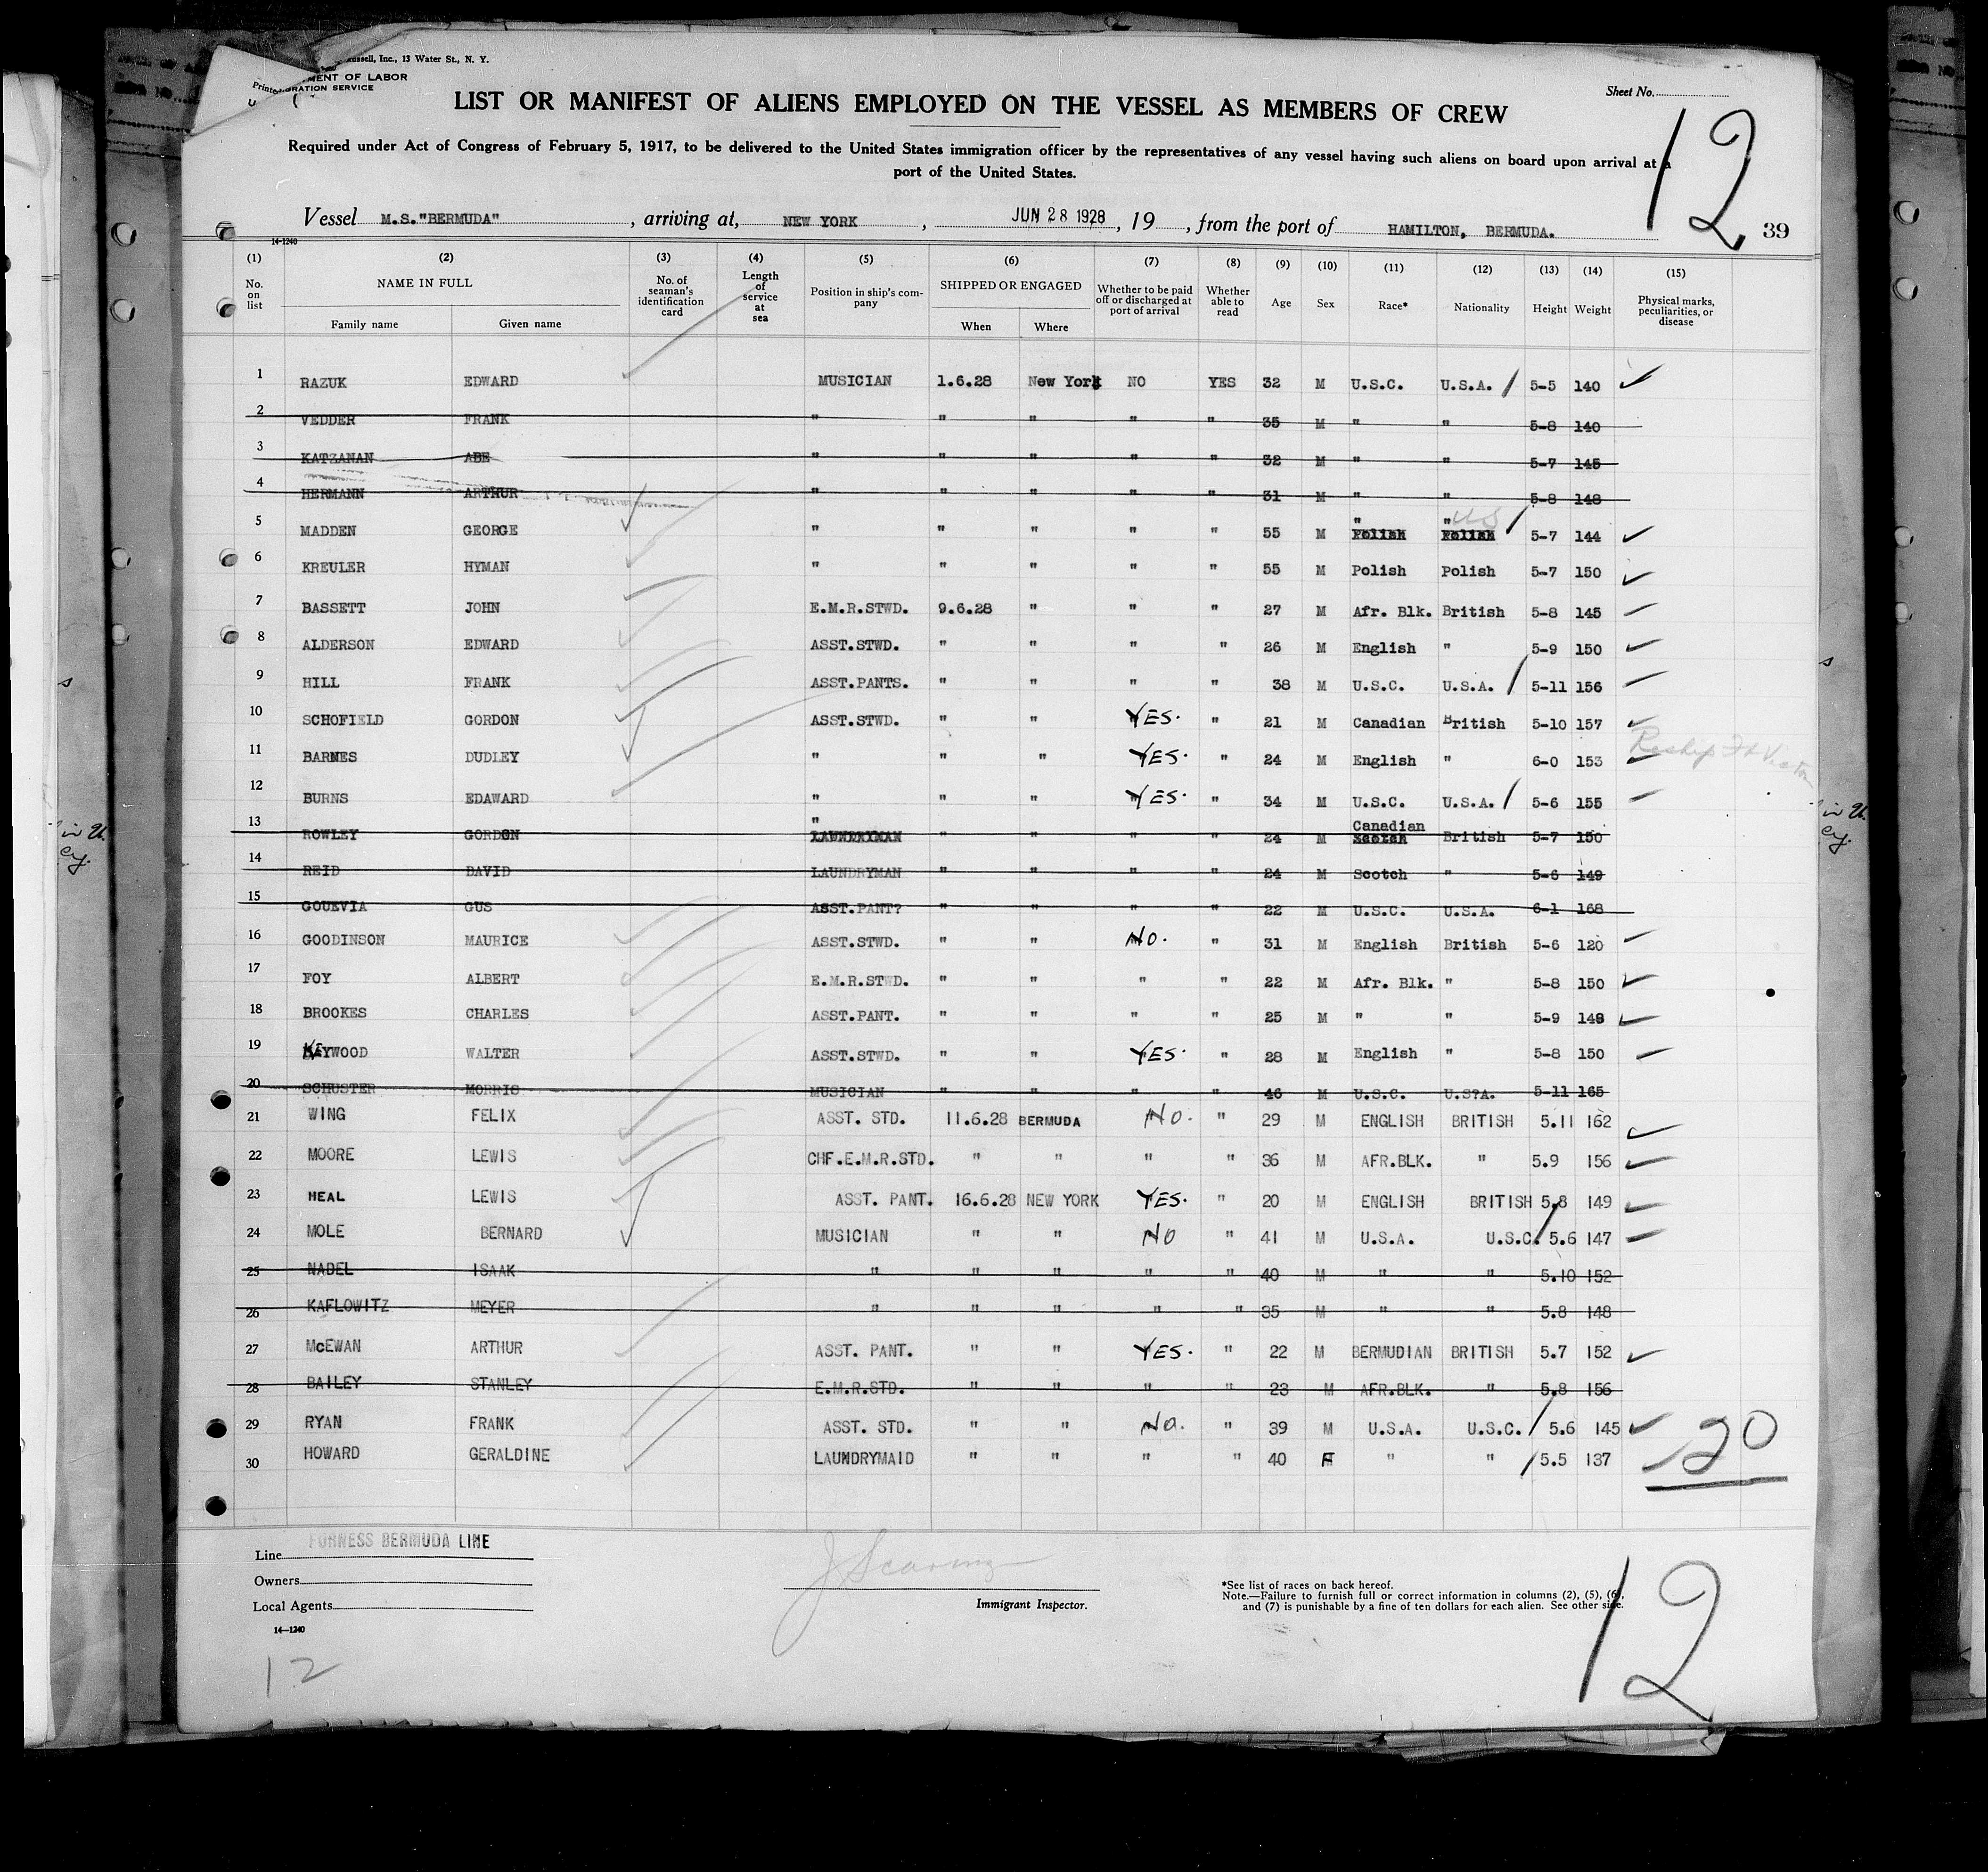 ussell, Inc., 13 Water St., N. Y.
MENT OF LABOR
Printed
RATION SERVICE
Sheet No.
12
LIST OR MANIFEST OF ALIENS EMPLOYED ON THE VESSEL AS MEMBERS OF CREW
Required under Act of Congress of February 5, 1917, to be delivered to the United States immigration officer by the representatives of any vessel having such aliens on board upon arrival at a
port of the United States.
Vessel M.S."BERMUDA" , arriving at, NEW YORK , JUN 28 1928 , 19 , from the port of HAMILTON, BERMUDA. 39
14-1240
(1) (2) (3) (4) (5) (6) (7) (8) (9) (10) (11) (12) (13) (14) (15)
No. on list NAME IN FULL Family name Given name No. of seaman's identification card Length of service at sea Position in ship's company SHIPPED OR ENGAGED When Where Whether to be paid off or discharged at port of arrival Whether able to read Age Sex Race* Nationality Height Weight Physical marks, peculiarities, or disease
1 RAZUK EDWARD MUSICIAN 1.6.28 New York NO YES 32 M U.S.C. U.S.A. 5-5 140
2 VEDDER FRANK " " " " " 35 M " " 5-8 140
3 KATZANAN ABE " " " " " 32 M " " 5-7 145
4 HERMANN ARTHUR " " " " " 31 M " " 5-8 148
5 MADDEN GEORGE " " " " " 55 M " Polish " Polish US 5-7 144
6 KREULER HYMAN " " " " " 55 M Polish Polish 5-7 150
7 BASSETT JOHN E.M.R.STWD. 9.6.28 " " " 27 M Afr. Blk. British 5-8 145
8 ALDERSON EDWARD ASST.STWD. " " " " 26 M English " 5-9 150
9 HILL FRANK ASST.PANTS. " " " " 38 M U.S.C. U.S.A. 5-11 156
10 SCHOFIELD GORDON ASST.STWD. " " YES. " 21 M Canadian British 5-10 157
11 BARNES DUDLEY " " " YES. " 24 M English " 6-0 153 Reship Ft Victoria
12 BURNS EDAWARD " " " YES. " 34 M U.S.C. U.S.A. 5-6 155
13 ROWLEY GORDON " LAUNDRYMAN " " " " 24 M Canadian Scotch British 5-7 150
14 REID DAVID LAUNDRYMAN " " " " 24 M Scotch " 5-6 149
15 GOUEVIA GUS ASST.PANT? " " " " 22 M U.S.C. U.S.A. 6-1 168
16 GOODINSON MAURICE ASST.STWD. " " NO. " 31 M English British 5-6 120
17 FOY ALBERT E.M.R.STWD. " " " " 22 M Afr. Blk. " 5-8 150
18 BROOKES CHARLES ASST.PANT. " " " " 25 M " " 5-9 148
19 YWOOD WALTER ASST.STWD. " " YES. " 28 M English " 5-8 150
20 SCHUSTER MORRIS MUSICIAN " " " " 46 M U.S.C. U.S?A. 5-11 165
21 WING FELIX ASST. STD. 11.6.28 BERMUDA NO. " 29 M ENGLISH BRITISH 5.11 162
22 MOORE LEWIS CHF.E.M.R.STD. " " " " 36 M AFR.BLK. " 5.9 156
23 HEAL LEWIS ASST. PANT. 16.6.28 NEW YORK YES. " 20 M ENGLISH BRITISH 5.8 149
24 MOLE BERNARD MUSICIAN " " NO " 41 M U.S.A. U.S.C. 5.6 147
25 NADEL ISAAK " " " " " 40 M " " 5.10 152
26 KAFLOWITZ MEYER " " " " " 35 M " " 5.8 148
27 McEWAN ARTHUR ASST. PANT. " " YES. " 22 M BERMUDIAN BRITISH 5.7 152
28 BAILEY STANLEY E.M.R.STD. " " " " 23 M AFR.BLK. " 5.8 156
29 RYAN FRANK ASST. STD. " " NO. " 39 M U.S.A. U.S.C. 5.6 145
30 HOWARD GERALDINE LAUNDRYMAID " " " " 40 F " " 5.5 137
20
Line FURNESS BERMUDA LINE
Owners
Local Agents
14—1240
J Scaring
Immigrant Inspector.
*See list of races on back hereof.
Note.—Failure to furnish full or correct information in columns (2), (5), (6),
and (7) is punishable by a fine of ten dollars for each alien. See other side.
12
12